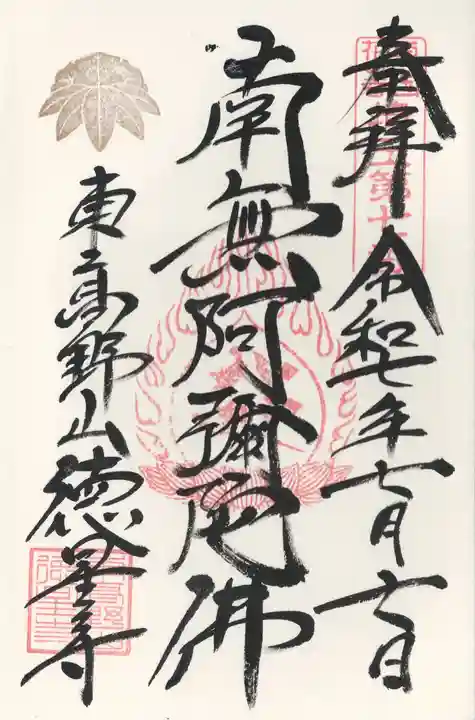 奉拝 令和七年七月六日
第十
南無阿彌陀佛
東高野山徳星寺